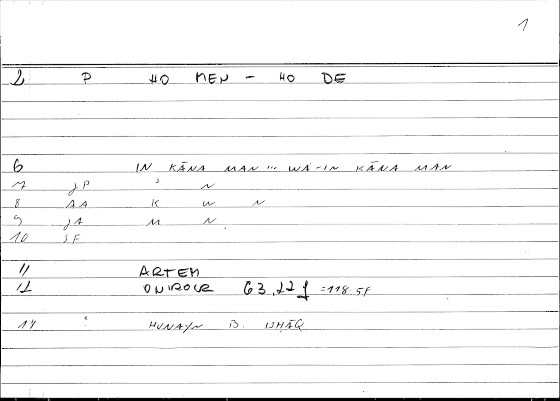 1
2 P HO MEN - HO DE
6 IN KĀNA MAN ... WA-IN KĀNA MAN
7 JP ʾ N
8 AA K W N
9 JA M N
10 SF
11 ARTEM
12 ONIROCR 63,22 f =118.5f
14 : HUNAYN B. ISHĀQ